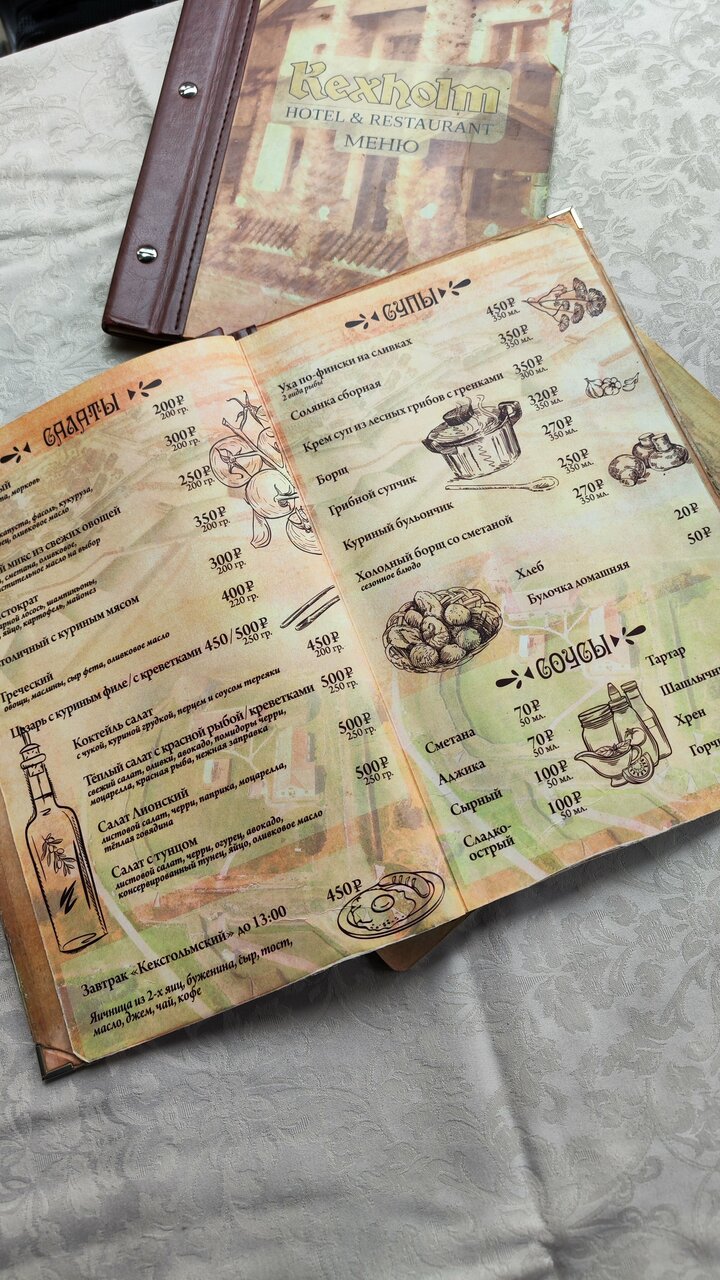 Kexholm
HOTEL & RESTAURANT
МЕНЮ
САЛАТЫ
200₽
200 гр.
морковь
300₽
200 гр.
капуста, фасоль, кукуруза,
оливковое масло
250₽
200 гр.
микс из свежих овощей
сметана, оливковое,
растительное масло на выбор
350₽
200 гр.
лосось, шампиньоны,
яйцо, картофель, майонез
300₽
200 гр.
с куриным мясом
400₽
220 гр.
Греческий
овощи, маслины, сыр фета, оливковое масло
Цезарь с куриным филе/с креветками 450/500₽
250 гр.
Коктейль салат 450₽
200 гр.
с чукой, куриной грудкой, перцем и соусом терияки
Тёплый салат с красной рыбой/креветками 500₽
250 гр.
свежий салат, оливки, авокадо, помидоры черри,
моцарелла, красная рыба, нежная заправка
Салат Лионский 500₽
250 гр.
листовой салат, черри, паприка, моцарелла,
тёплая говядина
Салат с тунцом 500₽
250 гр.
листовой салат, черри, огурец, авокадо,
консервированный тунец, яйцо, оливковое масло
Завтрак «Кексгольмский» до 13:00 450₽
Яичница из 2-х яиц, буженина, сыр, тост,
масло, джем, чай, кофе
СУПЫ
Уха по-фински на сливках 450₽
350 мл.
2 вида рыбы
Солянка сборная 350₽
350 мл.
Крем суп из лесных грибов с гренками 350₽
300 мл.
Борщ 320₽
350 мл.
Грибной супчик 270₽
350 мл.
Куриный бульончик 250₽
350 мл.
Холодный борщ со сметаной 270₽
350 мл.
сезонное блюдо
Хлеб 20₽
Булочка домашняя 50₽
СОУСЫ
Сметана 70₽
50 мл.
Аджика 70₽
50 мл.
Сырный 100₽
50 мл.
Сладко-
острый 100₽
50 мл.
Тартар
Хрен